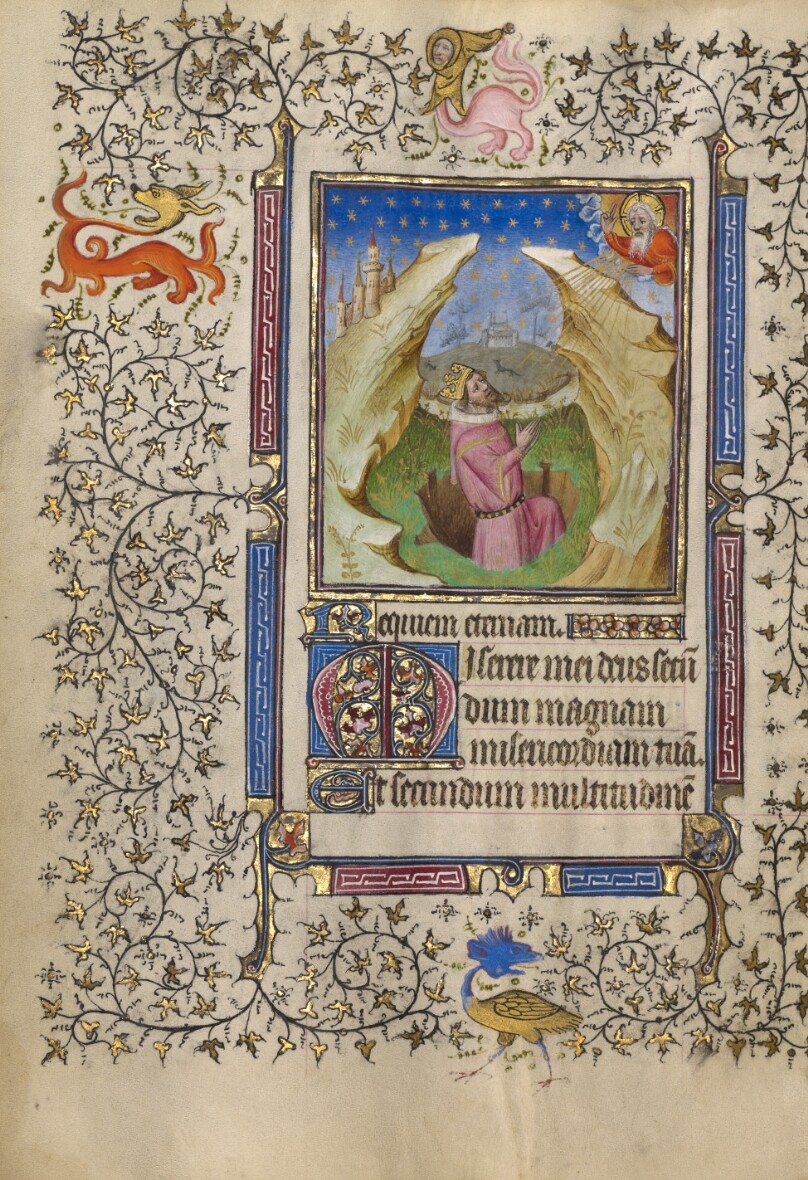 Requiem eternam.
Miserere mei deus secū
dum magnam
misericordiam tuā.
Et secundum multitudinē